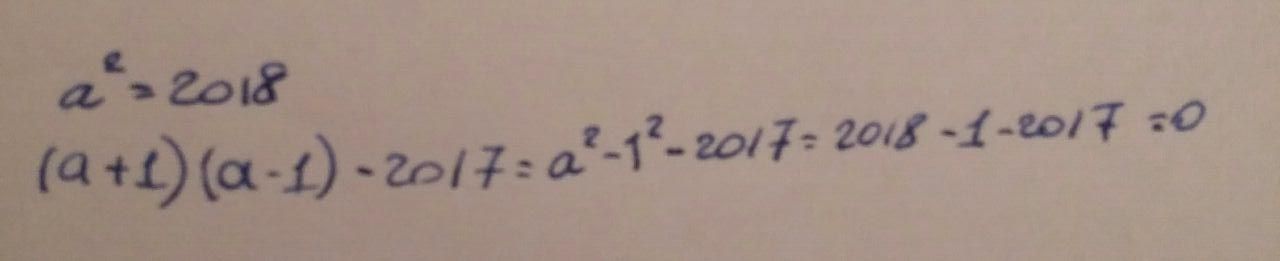 a² = 2018
(a+1)(a-1) - 2017 = a² - 1² - 2017 = 2018 - 1 - 2017 = 0